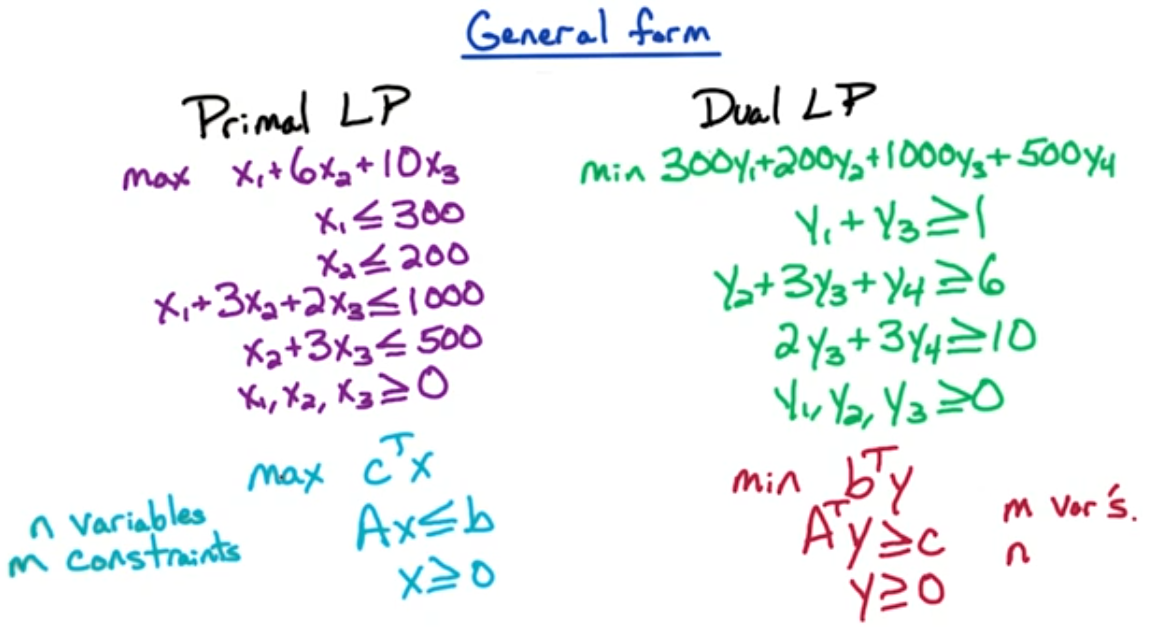 General form
Primal LP
max x₁+6x₂+10x₃
x₁≤300
x₂≤200
x₁+3x₂+2x₃≤1000
x₂+3x₃≤500
x₁, x₂, x₃≥0
max cᵀx
n variables
m constraints
Ax≤b
x≥0
Dual LP
min 300y₁+200y₂+1000y₃+500y₄
y₁+y₃≥1
y₂+3y₃+y₄≥6
2y₃+3y₄≥10
y₁, y₂, y₃≥0
min bᵀy
Aᵀy≥c
y≥0
m var's.
n